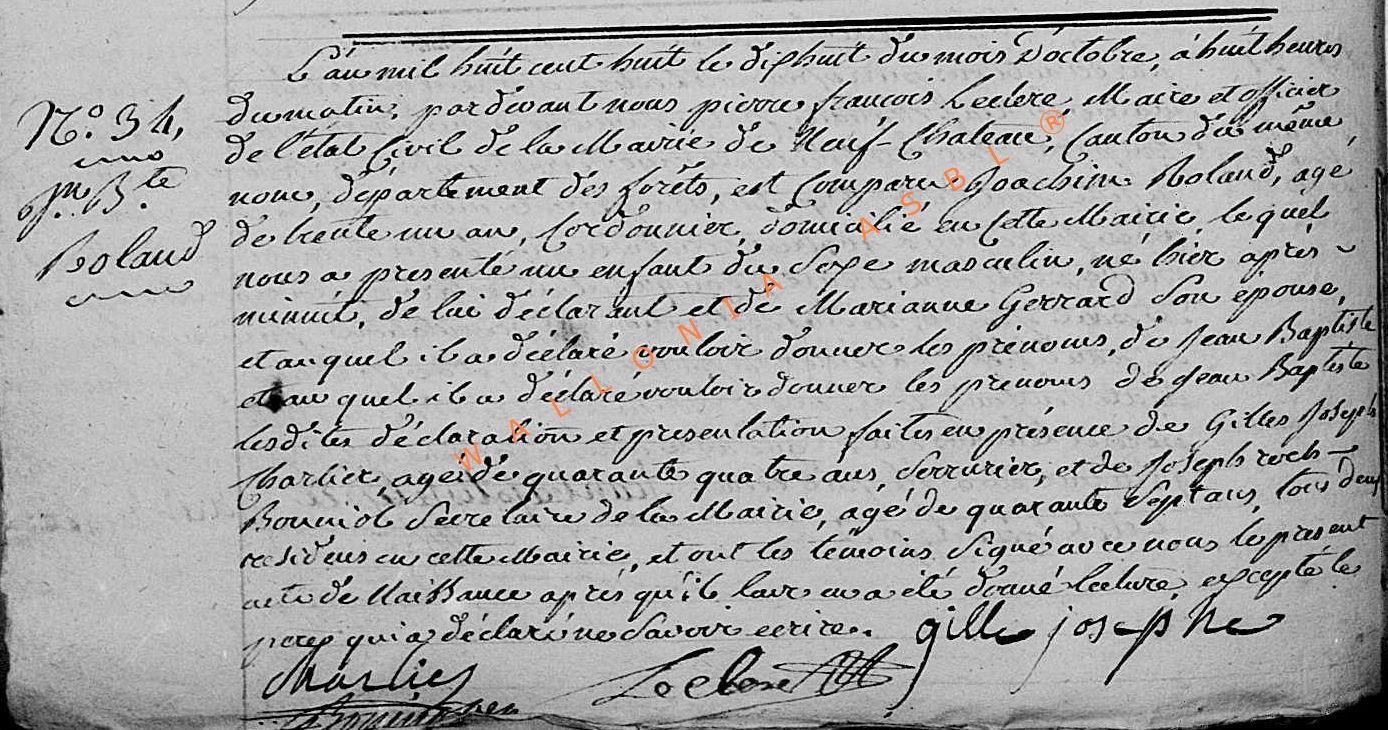 L'an mil huit cent huit le dixhuit du mois D'octobre, à huit heures
N.° 34.
du matin, pardevant nous pierre françois Leclere, Maire et officier
de l'état Civil de la Mairie de Neuf-Chateau, Canton du même
Jn. B.te
nom, département des forêts, est Comparu Joachim Roland, agé
Roland
de trente un an, Cordonnier, domicilié en Cette Mairie, le quel
nous a presenté un enfant du Sexe masculin, né hier après
minuit, de lui déclarant et de Marianne Gerrard Son épouse,
et au quel il a déclaré vouloir donner les prénoms, de Jean Baptiste
et au quel il a déclaré vouloir donner les prenoms de Jean Baptiste
lesdites déclaration et presentation faites en présence de Gilles Joseph
Charlier, agé de quarante quatre ans, Serrurier, et de Joseph roch
Bonniol Secretaire de la Mairie, agé de quarante Sept ans, tous deux
residens en cette Mairie, et ont les témoins Signé avec nous le present
acte de Naissance après qu'il leur en a été donné lecture, excepté le
pere qui a déclaré ne Savoir ecrire. gille josephe
Charlier Leclere
WALLONIA ASBL ®